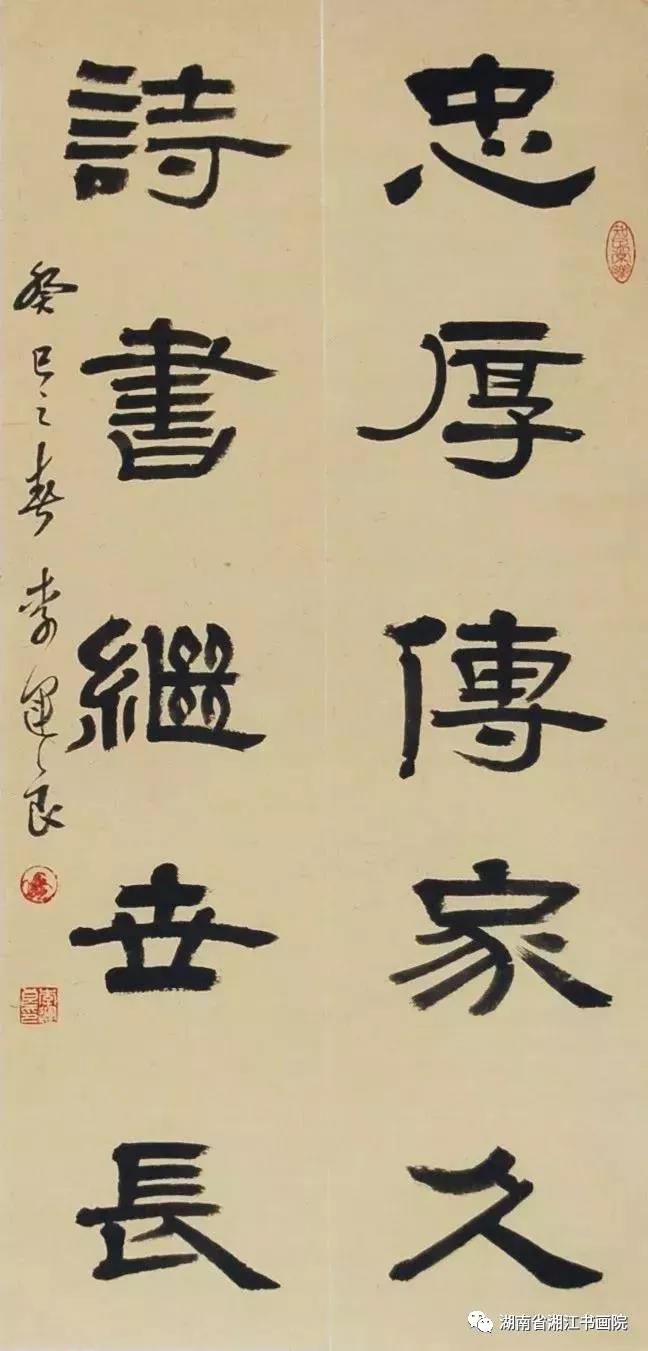 忠厚傳家久
詩書繼世長
癸巳之春 李運良
湖南省湘江书画院